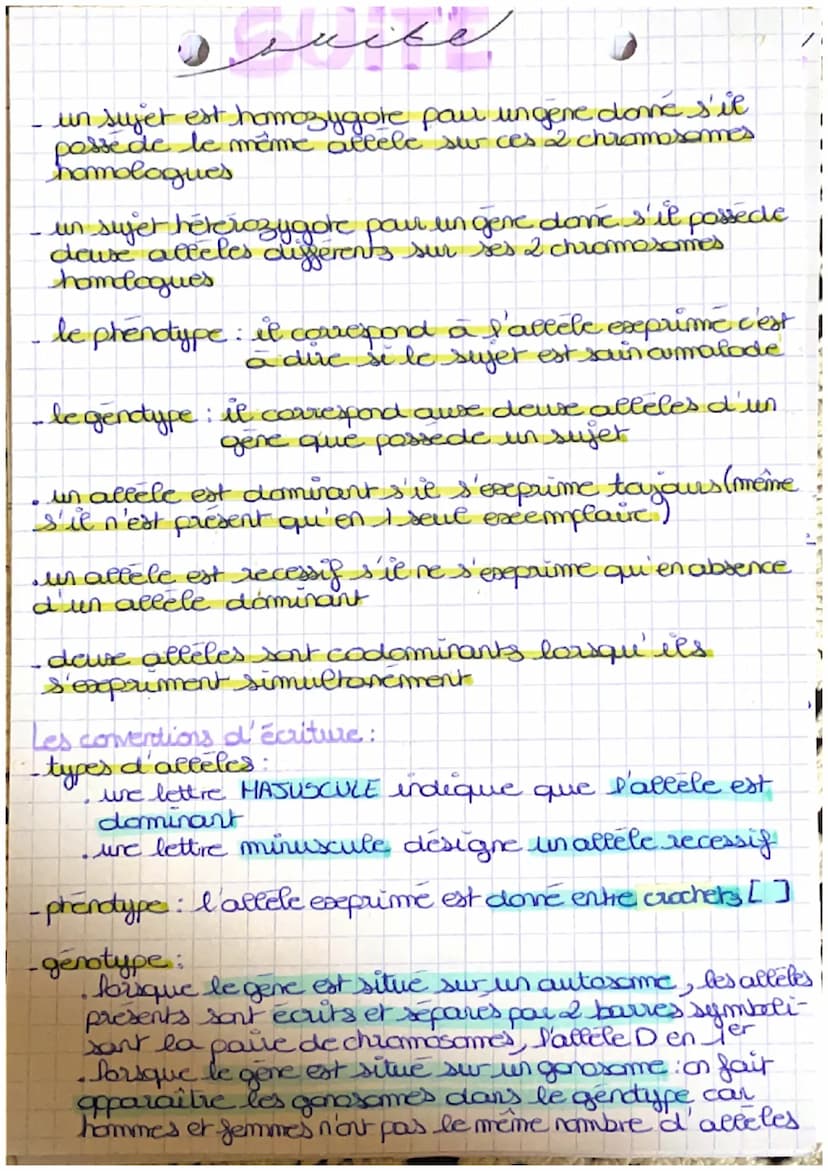 SUITE
suite
- un sujet est homozygote pour un gène donné s'il
possède le même allèle sur ces 2 chromosomes
homologues
- un sujet hétérozygote pour un gène donné s'il possède
deux allèles différents sur ses 2 chromosomes
homologues
- le phénotype : il correspond à l'allèle exprimé c'est
à dire si le sujet est sain ou malade
- le génotype : il correspond aux deux allèles d'un
gène que possède un sujet
. un allèle est dominant s'il s'exprime toujours (même
s'il n'est présent qu'en 1 seul exemplaire.)
. un allèle est recessif s'il ne s'exprime qu'en absence
d'un allèle dominant
- deux allèles sont codominants lorsqu'ils
s'expriment simultanément
Les conventions d'écriture :
- types d'allèles :
. une lettre MAJUSCULE indique que l'allèle est
dominant
. une lettre minuscule désigne un allèle recessif
- phénotype : l'allèle exprimé est donné entre crochets [ ]
- génotype :
. lorsque le gène est situé sur un autosome, les allèles
présents sont écrits et séparés par 2 barres symboli-
sant la paire de chromosomes, l'allèle D en 1er
. lorsque le gène est situé sur un gonosome : on fait
apparaître les gonosomes dans le génotype car
hommes et femmes n'ont pas le même nombre d'allèles